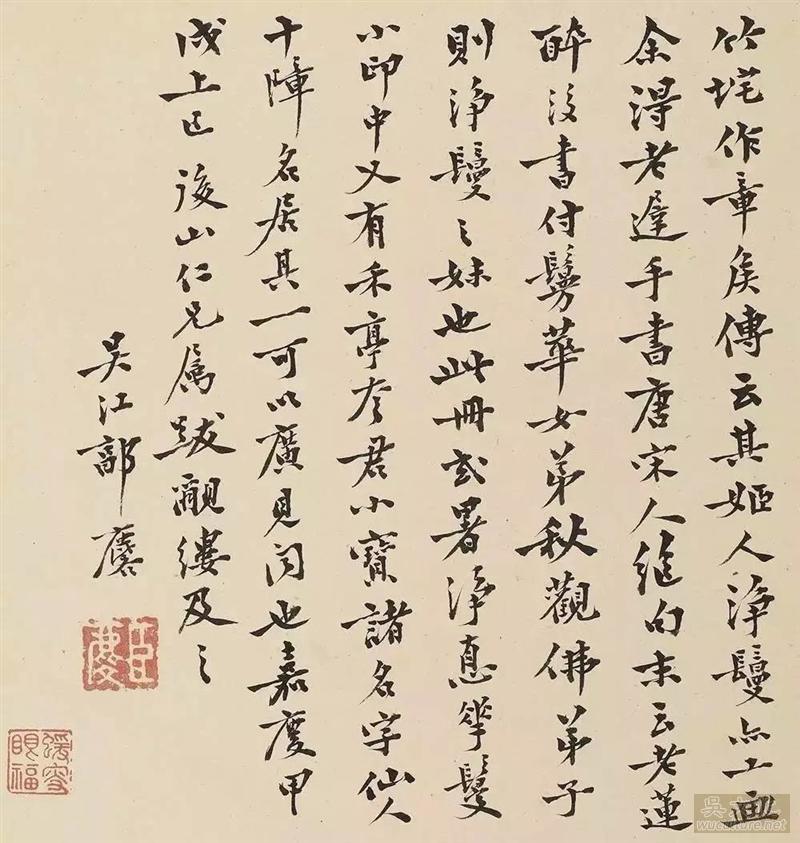 竹垞作章侯傳云其姬人淨鬘亦工画
余得老遲手書唐宋人絕句末云老蓮
醉後書付髣華女弟秋觀佛弟子
則淨鬘〻妹也此冊或署淨惠華鬘
小印中又有禾亭李君小寶諸名字仙人
十幛名居其一可以廣見聞也嘉慶甲
戌上巳後山仁兄屬跋覼縷及之
吳江郭麐
臣麐
眼福
wuculture.net